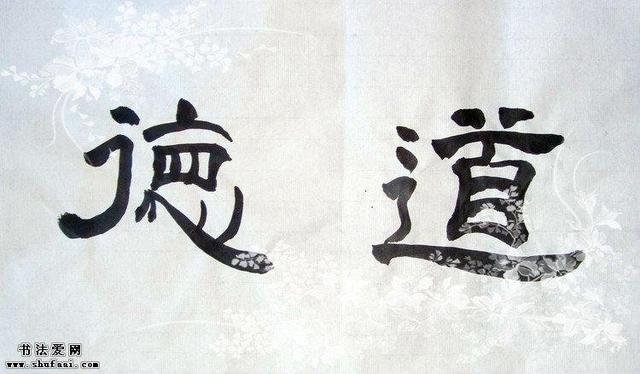 道德
书法爱网
www.shufaai.com